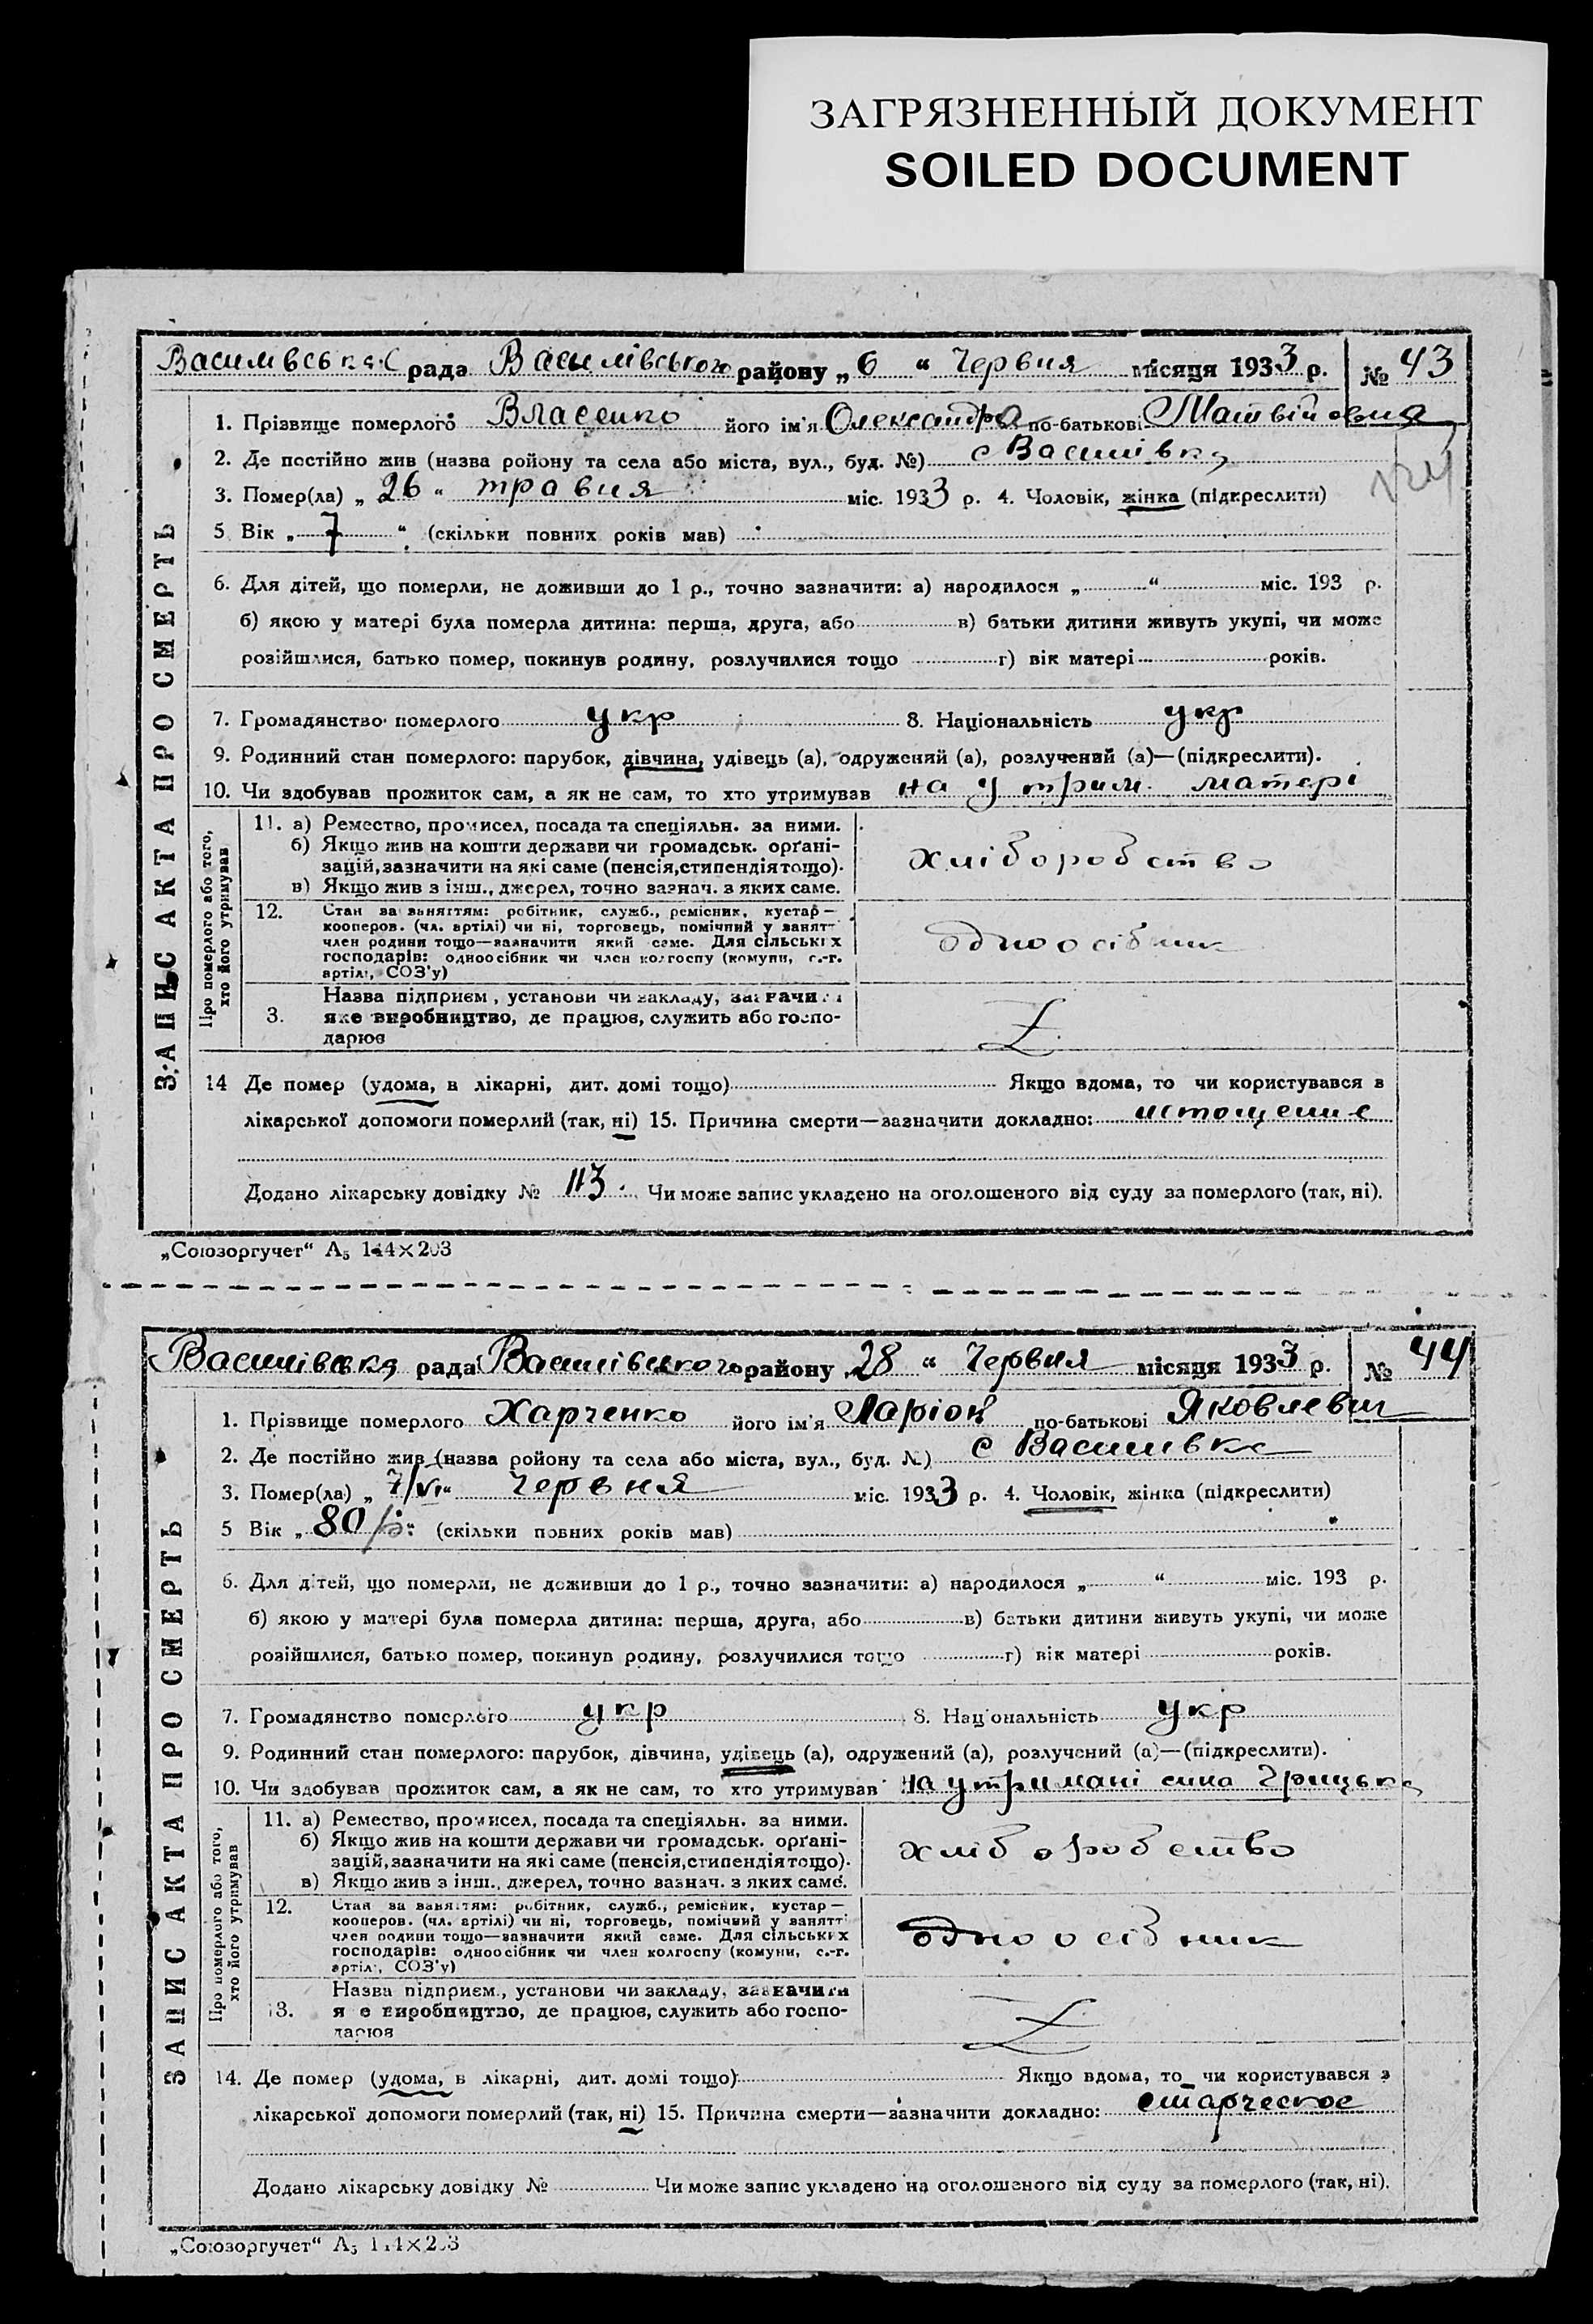 ЗАГРЯЗНЕННЫЙ ДОКУМЕНТ
SOILED DOCUMENT
рада Василівського району „6“ Червня місяця 1933 р. № 43
1. Прізвище померлого Власенко його ім'я Олександра по-батькові Матвійовна
2. Де постійно жив (назва ройону та села або міста, вул., буд. №) с Василівка
3. Помер(ла) „26“ травня міс. 1933 р. 4. Чоловік, жінка (підкреслити)
5 Вік „7“ (скільки повних років мав)
6. Для дітей, що померли, не доживши до 1 р., точно зазначити: а) народилося „ “ міс. 193 р.
б) якою у матері була померла дитина: перша, друга, або в) батьки дитини живуть укупі, чи може
розійшлися, батько помер, покинув родину, розлучилися тощо г) вік матері років.
7. Громадянство померлого укр 8. Національність укр
9. Родинний стан померлого: парубок, дівчина, удівець (а), одружений (а), розлучений (а)—(підкреслити).
10. Чи здобував прожиток сам, а як не сам, то хто утримував на утрим. матері
ЗАПИС АКТА ПРО СМЕРТЬ
Про померлого або того,
хто його утримував
11. а) Ремество, промисел, посада та спеціяльн. за ними.
б) Якщо жив на кошти держави чи громадськ. орґані-
зацій, зазначити на які саме (пенсія, стипендія тощо).
в) Якщо жив з інш., джерел, точно зазнач. з яких саме.
хліборобство
12. Стан за заняттям: робітник, служб., ремісник, кустар—
кооперов. (чл. артілі) чи ні, торговець, помічний у занятт
член родини тощо—зазначити який саме. Для сільських
господарів: одноосібник чи член колгоспу (комуни, с.-г.
артілі, СОЗ'у)
одноосібник
Назва підприєм, установи чи закладу, зазначити
3. яке виробництво, де працює, служить або госпо-
дарює
14 Де помер (удома, в лікарні, дит. домі тощо) Якщо вдома, то чи користувався з
лікарської допомоги померлий (так, ні) 15. Причина смерти—зазначити докладно: истощение
Додано лікарську довідку № 113. Чи може запис укладено на оголошеного від суду за померлого (так, ні).
„Союзоргучет“ А5 144×203
Василівська рада Василівського району „28“ Червня місяця 1933 р. № 44
1. Прізвище померлого Харченко його ім'я Ларіон по-батькові Яковлевич
2. Де постійно жив (назва ройону та села або міста, вул., буд. №) с Василівка
3. Помер(ла) „7/VI“ Червня міс. 1933 р. 4. Чоловік, жінка (підкреслити)
5 Вік „80 р.“ (скільки повних років мав)
6. Для дітей, що померли, не доживши до 1 р., точно зазначити: а) народилося „ “ міс. 193 р.
б) якою у матері була померла дитина: перша, друга, або в) батьки дитини живуть укупі, чи може
розійшлися, батько помер, покинув родину, розлучилися тощо г) вік матері років.
7. Громадянство померлого укр 8. Національність укр
9. Родинний стан померлого: парубок, дівчина, удівець (а), одружений (а), розлучений (а)—(підкреслити).
10. Чи здобував прожиток сам, а як не сам, то хто утримував на утримані сина Грицька
ЗАПИС АКТА ПРО СМЕРТЬ
Про померлого або того,
хто його утримував
11. а) Ремество, промисел, посада та спеціяльн. за ними.
б) Якщо жив на кошти держави чи громадськ. орґані-
зацій, зазначити на які саме (пенсія, стипендія тощо).
в) Якщо жив з інш., джерел, точно зазнач. з яких саме.
хліборобство
12. Стан за заняттям: робітник, служб., ремісник, кустар—
кооперов. (чл. артілі) чи ні, торговець, помічний у занятті
член родини тощо—зазначити який саме. Для сільських
господарів: одноосібник чи член колгоспу (комуни, с.-г.
артілі, СОЗ'у)
одноосібник
Назва підприєм., установи чи закладу, зазначити
13. яке виробництво, де працює, служить або госпо-
дарює
14. Де помер (удома, в лікарні, дит. домі тощо) Якщо вдома, то чи користувався з
лікарської допомоги померлий (так, ні) 15. Причина смерти—зазначити докладно: старческое
Додано лікарську довідку № Чи може запис укладено на оголошеного від суду за померлого (так, ні).
„Союзоргучет“ А5 144×203